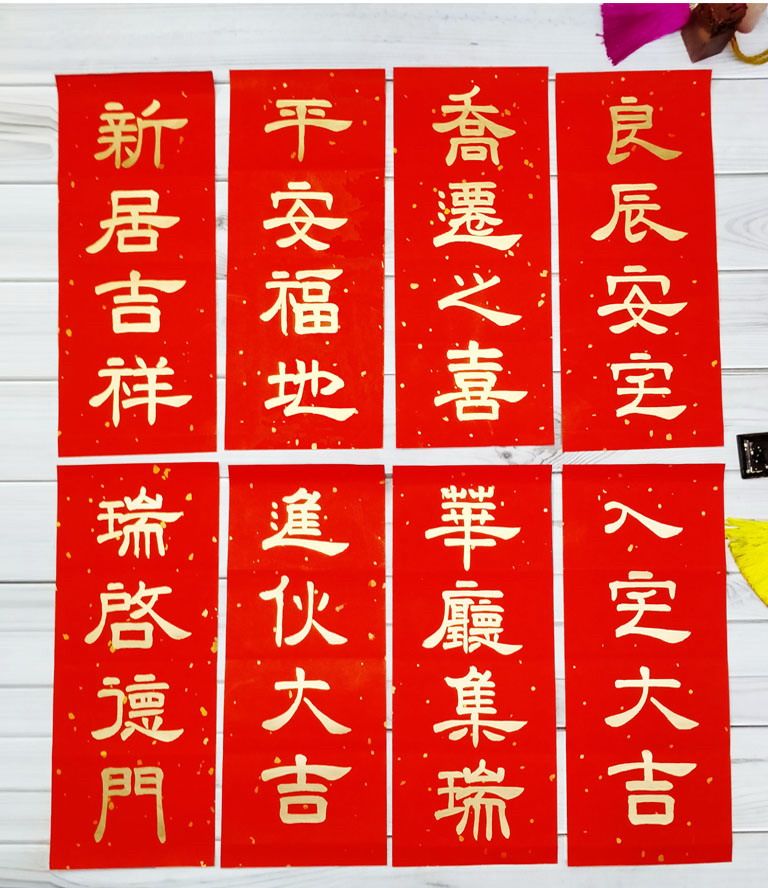 新居吉祥
平安福地
喬遷之喜
良辰安宅
瑞啓德門
進伙大吉
華廳集瑞
入宅大吉